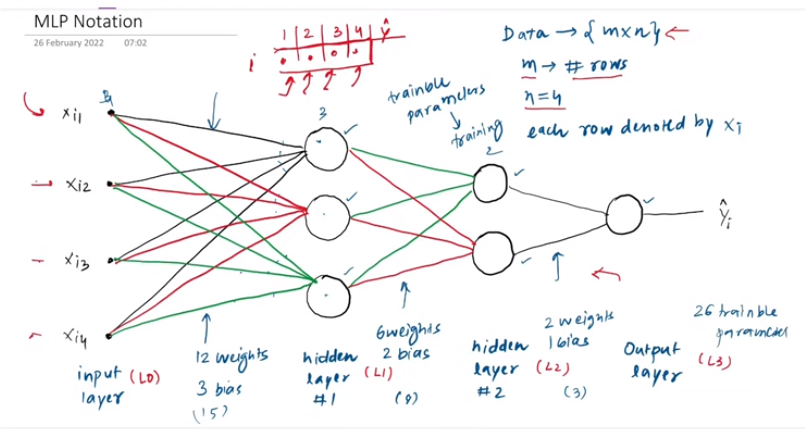 MLP Notation
26 February 2022 07:02
1 2 3 4 ŷ
i
Data → { m x n } ←
m → # rows
n = 4
each row denoted by xi
trainble
parameters
training
4
3
2
xi1
xi2
xi3
xi4
ŷi
input (L0)
layer
12 weights
3 bias
(15)
hidden
layer (L1)
#1
6 weights
2 bias
(8)
hidden
layer (L2)
#2
2 weights
1 bias
(3)
Output
layer (L3)
26 trainble
parameter